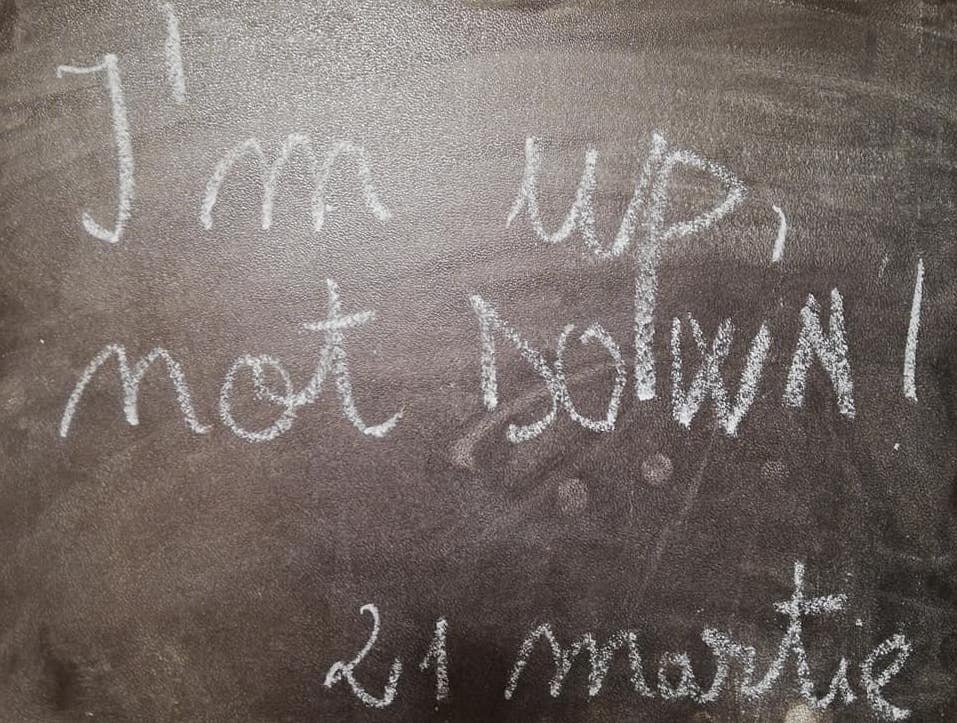 I'm up,
not DOWN!
21 martie